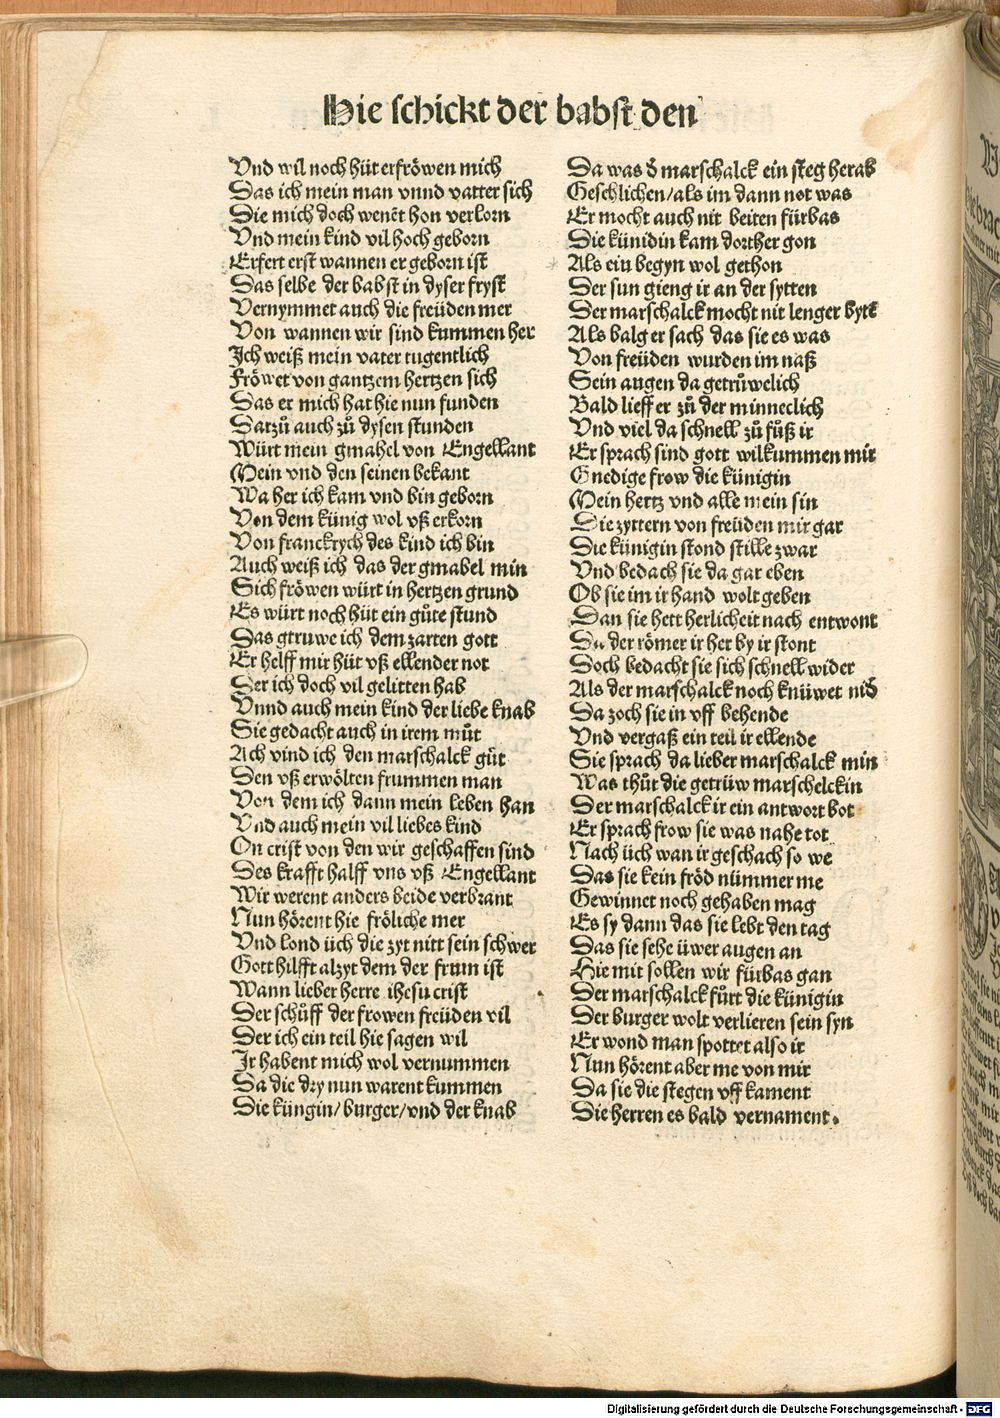 Hie schickt der babst den
Vnd wil noch hüt erfröwen mich
Das ich mein man vnnd vatter sich
Die mich doch wenēt hon verlorn
Vnd mein kind vil hoch geborn
Erfert erst wannen er geborn ist
Das selbe der babst in dyser fryst
Vernymmet auch die freüden mer
Von wannen wir sind kummen her
Ich weiß mein vater tugentlich
Fröwet von gantzem hertzen sich
Das er mich hat hie nun funden
Darzů auch zů dysen stunden
Würt mein gmahel von Engellant
Mein vnd den seinen bekant
Wa her ich kam vnd bin geborn
Von dem künig wol vß erkorn
Von franckrych des kind ich bin
Auch weiß ich das der gmahel min
Sich fröwen würt in hertzen grund
Es würt noch hüt ein gůte stund
Das gtruwe ich dem zarten gott
Er helff mir hüt vß ellender not
Der ich doch vil gelitten hab
Vnnd auch mein kind der liebe knab
Sie gedacht auch in irem můt
Ach vind ich den marschalck gůt
Den vß erwölten frummen man
Von dem ich dann mein leben han
Vnd auch mein vil liebes kind
On crist von den wir geschaffen sind
Des krafft halff vns vß Engellant
Wir werent anders beide verbrant
Nun hörent hie fröliche mer
Vnd lond üch die zyt nitt sein schwer
Gott hilfft alzyt dem der frum ist
Wann lieber herre ihesu crist
Der schůff der frowen freüden vil
Der ich ein teil hie sagen wil
Ir habent mich wol vernummen
Da die dry nun warent kummen
Die küngin/burger/vnd der knab
Da was d̄ marschalck ein steg herab
Geschlichen/als im dann not was
Er mocht auch nit beiten fürbas
Die künidin kam dorther gon
Als ein begyn wol gethon
Der sun gieng ir an der sytten
Der marschalck mocht nit lenger bytē
Als balg er sach das sie es was
Von freüden wurden im naß
Sein augen da getrůwelich
Bald lieff er zů der minneclich
Vnd viel da schnell zů fůß ir
Er sprach sind gott wilkummen mir
Gnedige frow die künigin
Mein hertz vnd alle mein sin
Die zyttern von freüden mir gar
Die künigin stond stille zwar
Vnd bedach sie da gar eben
Ob sie im ir hand wolt geben
Dan sie hett herlicheit nach entwont
Da der römer ir her by ir stont
Doch bedacht sie sich schnell wider
Als der marschalck noch knüwet nid̄
Da zoch sie in vff behende
Vnd vergaß ein teil ir ellende
Sie sprach da lieber marschalck min
Was thůt die getrüw marschelckin
Der marschalck ir ein antwort bot
Er sprach frow sie was nahe tot
Nach üch wan ir geschach so we
Das sie kein fröd nümmer me
Gewinnet noch gehaben mag
Es sy dann das sie lebt den tag
Das sie sehe üwer augen an
Hie mit sollen wir fürbas gan
Der marschalck fůrt die künigin
Der burger wolt verlieren sein syn
Er wond man spottet also ir
Nun hörent aber me von mir
Da sie die stegen vff kament
Die herren es bald vernament.
Digitalisierung gefördert durch die Deutsche Forschungsgemeinschaft - DFG